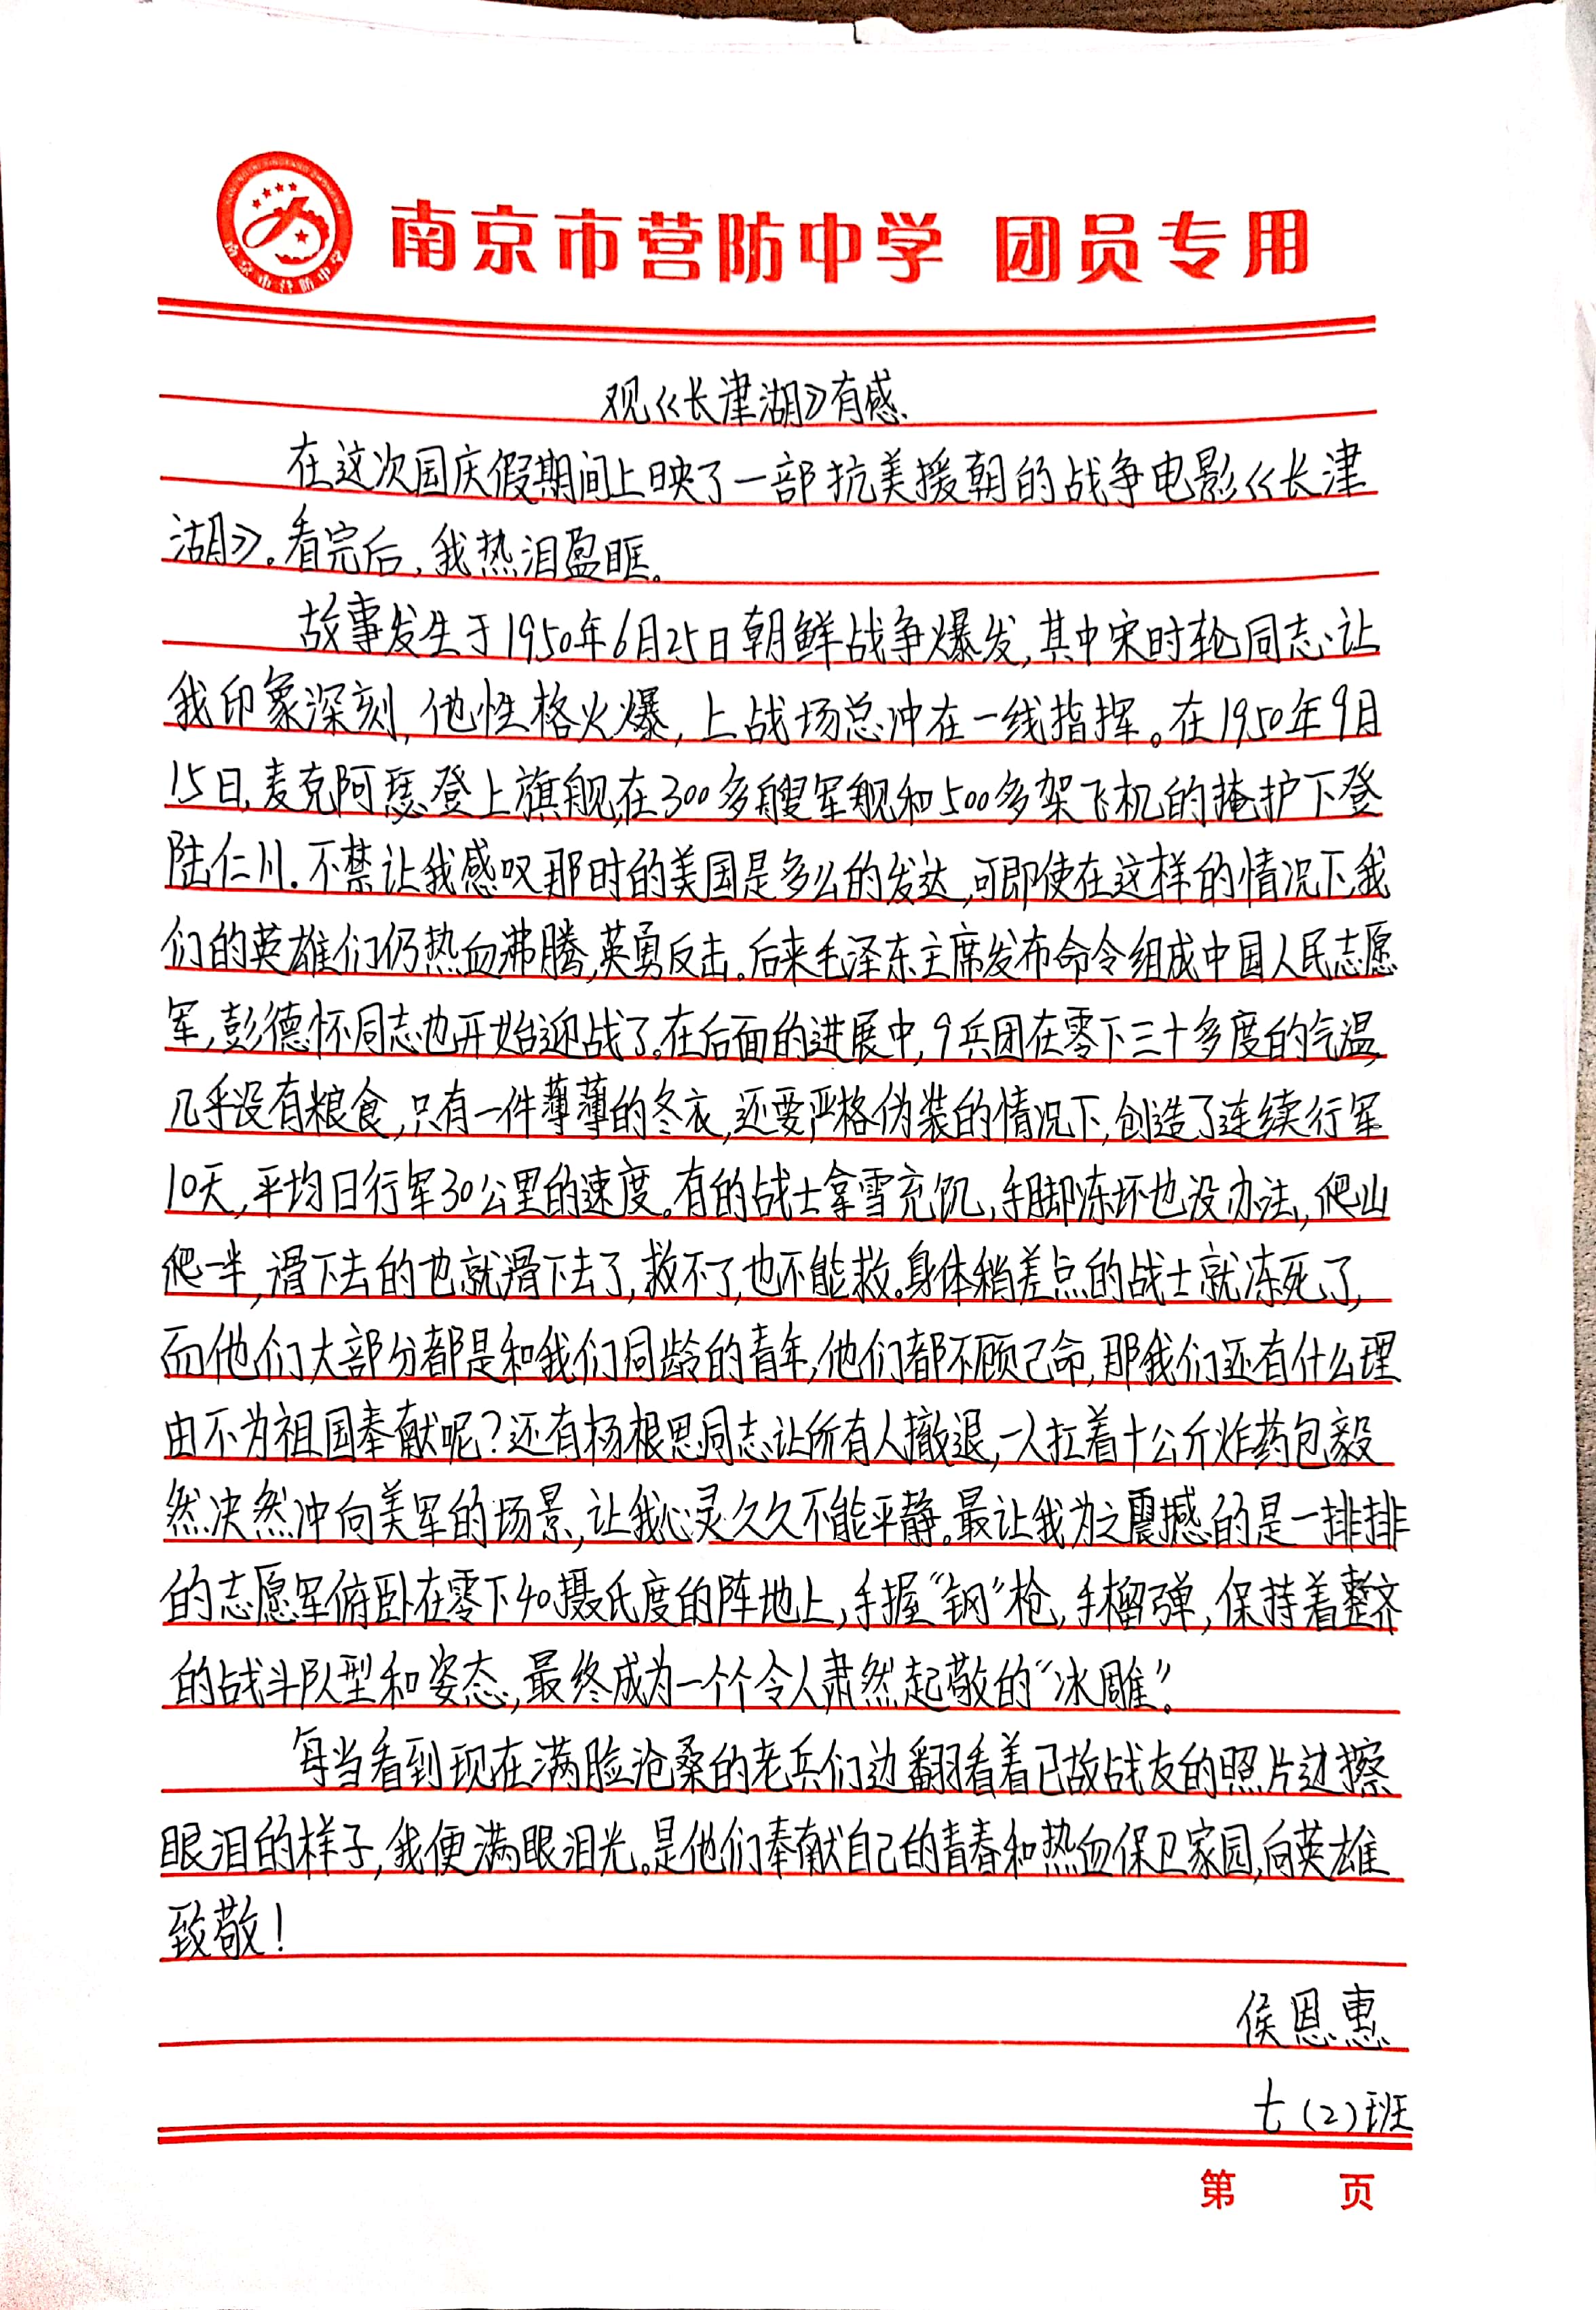 南京市营防中学 团员专用
南京市营防中学
观《长津湖》有感
在这次国庆假期间上映了一部抗美援朝的战争电影《长津
湖》。看完后,我热泪盈眶。
故事发生于1950年6月25日朝鲜战争爆发,其中宋时轮同志让
我印象深刻,他性格火爆,上战场总冲在一线指挥。在1950年9月
15日,麦克阿瑟登上旗舰,在300多艘军舰和500多架飞机的掩护下登
陆仁川.不禁让我感叹那时的美国是多么的发达,可即使在这样的情况下,我
们的英雄们仍热血沸腾,英勇反击。后来毛泽东主席发布命令组成中国人民志愿
军,彭德怀同志也开始迎战了。在后面的进展中,9兵团在零下三十多度的气温,
几乎没有粮食,只有一件薄薄的冬衣,还要严格伪装的情况下,创造了连续行军
10天,平均日行军30公里的速度。有的战士拿雪充饥,手脚冻坏也没办法,爬山
爬一半,滑下去的也就滑下去了,救不了,也不能救。身体稍差点的战士就冻死了,
而他们大部分都是和我们同龄的青年,他们都不顾己命,那我们还有什么理
由不为祖国奉献呢?还有杨根思同志让所有人撤退,一人扛着十公斤炸药包毅
然决然冲向美军的场景,让我心灵久久不能平静。最让我为之震撼的是一排排
的志愿军俯卧在零下40摄氏度的阵地上,手握“钢”枪,手榴弹,保持着整齐
的战斗队型和姿态,最终成为一个个令人肃然起敬的“冰雕”。
每当看到现在满脸沧桑的老兵们边翻看着已故战友的照片边擦
眼泪的样子,我便满眼泪光。是他们奉献自己的青春和热血保卫家园,向英雄
致敬!
侯恩惠
七(2)班
第 页